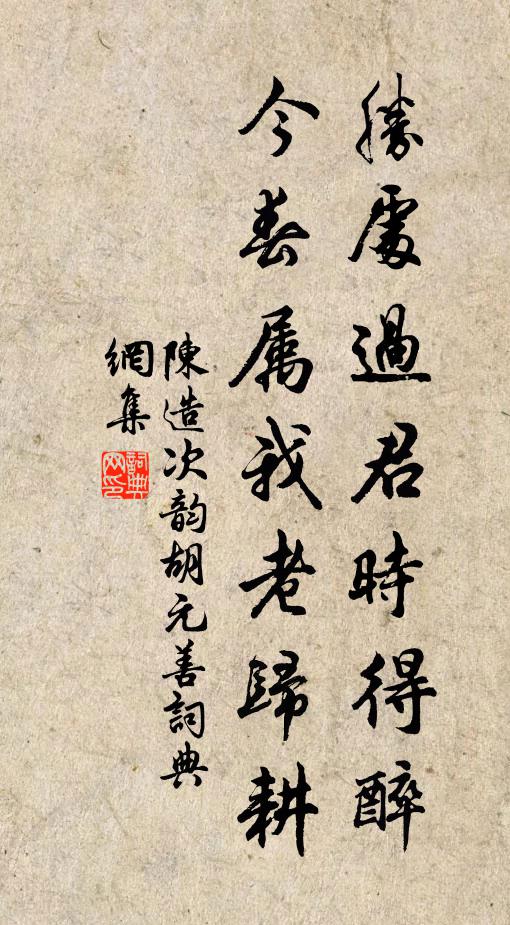 勝處過君時得醉
今春属我老歸耕
陳造次韵胡元善詞典
網集
詞典網印